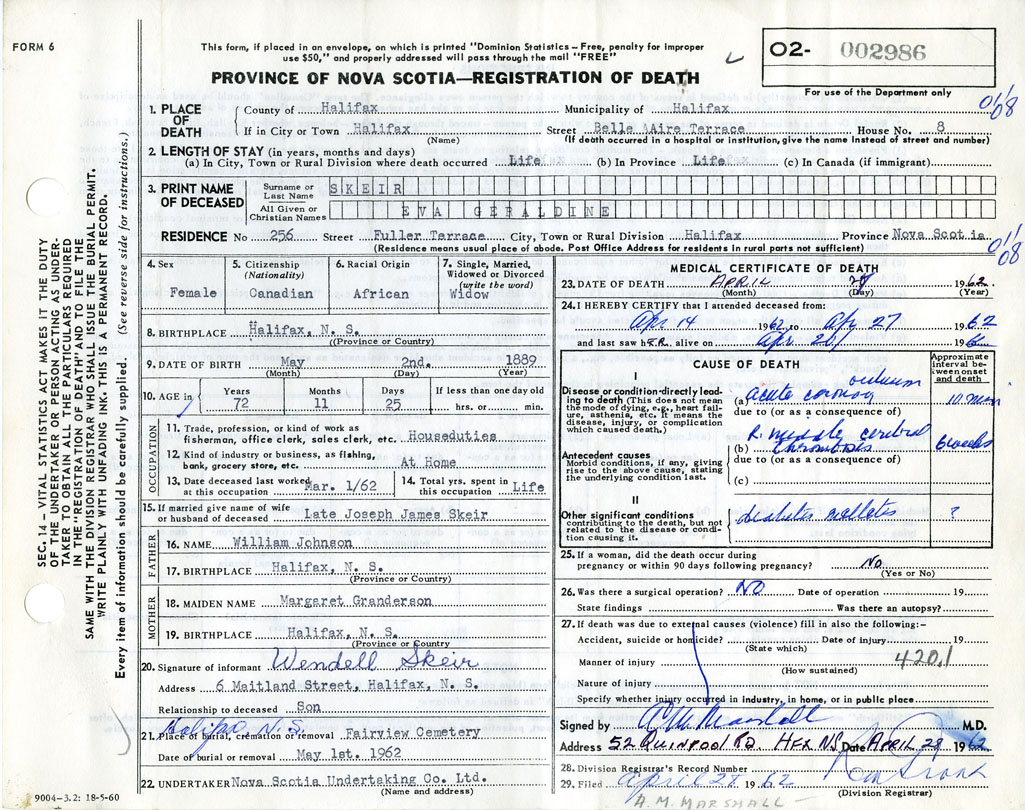 FORM 6
This form, if placed in an envelope, on which is printed "Dominion Statistics – Free, penalty for improper
use $50," and properly addressed will pass through the mail "FREE"
O2- 002986
PROVINCE OF NOVA SCOTIA—REGISTRATION OF DEATH
For use of the Department only
1. PLACE OF DEATH
County of Halifax Municipality of Halifax
If in City or Town Halifax Street Belle AAire Terrace House No. 8
(Name) (If death occurred in a hospital or institution, give the name instead of street and number)
2. LENGTH OF STAY (in years, months and days)
(a) In City, Town or Rural Division where death occurred Life (b) In Province Life (c) In Canada (if immigrant)
3. PRINT NAME OF DECEASED
Surname or Last Name SKEIR
All Given or Christian Names EVA GERALDINE
RESIDENCE No 256 Street Fuller Terrace City, Town or Rural Division Halifax Province Nova Scotia
(Residence means usual place of abode. Post Office Address for residents in rural parts not sufficient)
4. Sex
Female
5. Citizenship
(Nationality)
Canadian
6. Racial Origin
African
7. Single, Married,
Widowed or Divorced
(write the word)
Widow
8. BIRTHPLACE Halifax, N. S.
(Province or Country)
9. DATE OF BIRTH May 2nd. 1889
(Month) (Day) (Year)
10. AGE in
Years Months Days If less than one day old
72 11 25 hrs. or min.
OCCUPATION
11. Trade, profession, or kind of work as
fisherman, office clerk, sales clerk, etc. Houseduties
12. Kind of industry or business, as fishing,
bank, grocery store, etc. At Home
13. Date deceased last worked
at this occupation Mar. 1/62
14. Total yrs. spent in
this occupation Life
15. If married give name of wife
or husband of deceased Late Joseph James Skeir
FATHER
16. NAME William Johnson
17. BIRTHPLACE Halifax, N. S.
(Province or Country)
MOTHER
18. MAIDEN NAME Margaret Granderson
19. BIRTHPLACE Halifax, N. S.
(Province or Country)
20. Signature of informant Wendell Skeir
Address 6 Maitland Street, Halifax, N. S.
Relationship to deceased Son
Halifax, N. S.
21. Place of burial, cremation or removal Fairview Cemetery
Date of burial or removal May 1st. 1962
22. UNDERTAKER Nova Scotia Undertaking Co. Ltd.
(Name and address)
9004-3.2: 18-5-60
MEDICAL CERTIFICATE OF DEATH
23. DATE OF DEATH APRIL 27 1962
(Month) (Day) (Year)
24. I HEREBY CERTIFY that I attended deceased from:
Apr 14 1962 to Apr 27 1962
and last saw her alive on Apr 26 196
CAUSE OF DEATH
Approximate
interval be-
tween onset
and death
I
Disease or condition directly lead-
ing to death (This does not mean
the mode of dying, e.g., heart fail-
ure, asthenia, etc. It means the
disease, injury, or complication
which caused death.)
(a) acute coronary occlusion 10 min
due to (or as a consequence of)
Antecedent causes
Morbid conditions, if any, giving
rise to the above cause, stating
the underlying condition last.
R. middle cerebral
(b) thrombosis 6 weeks
due to (or as a consequence of)
(c)
II
Other significant conditions
contributing to the death, but not
related to the disease or condi-
tion causing it.
diabetes mellitus ?
25. If a woman, did the death occur during
pregnancy or within 90 days following pregnancy? No
(Yes or No)
26. Was there a surgical operation? NO Date of operation 19
State findings Was there an autopsy?
27. If death was due to external causes (violence) fill in also the following:-
Accident, suicide or homicide? Date of injury 19
(State which)
Manner of injury 420.1
(How sustained)
Nature of injury
Specify whether injury occurred in industry, in home, or in public place
Signed by A M Marshall M.D.
Address 52 QUINPOOL RD. HFX NS Date APRIL 28 1962
28. Division Registrar's Record Number
29. Filed April 28 1962
(Division Registrar)
A. M. MARSHALL
SEC. 14 – VITAL STATISTICS ACT MAKES IT THE DUTY
OF THE UNDERTAKER OR PERSON ACTING AS UNDER-
TAKER TO OBTAIN ALL THE PARTICULARS REQUIRED
IN THE "REGISTRATION OF DEATH" AND TO FILE THE
SAME WITH THE DIVISION REGISTRAR WHO SHALL ISSUE THE BURIAL PERMIT.
WRITE PLAINLY WITH UNFADING INK. THIS IS A PERMANENT RECORD.
Every item of information should be carefully supplied. (See reverse side for instructions.)